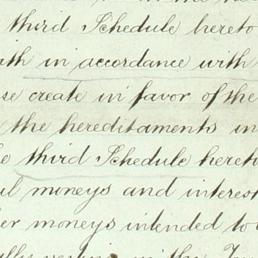 third Schedule hereto
in accordance with
create in favor of the
the hereditaments in
third Schedule hereto
moneys and interest
moneys intended to
in the